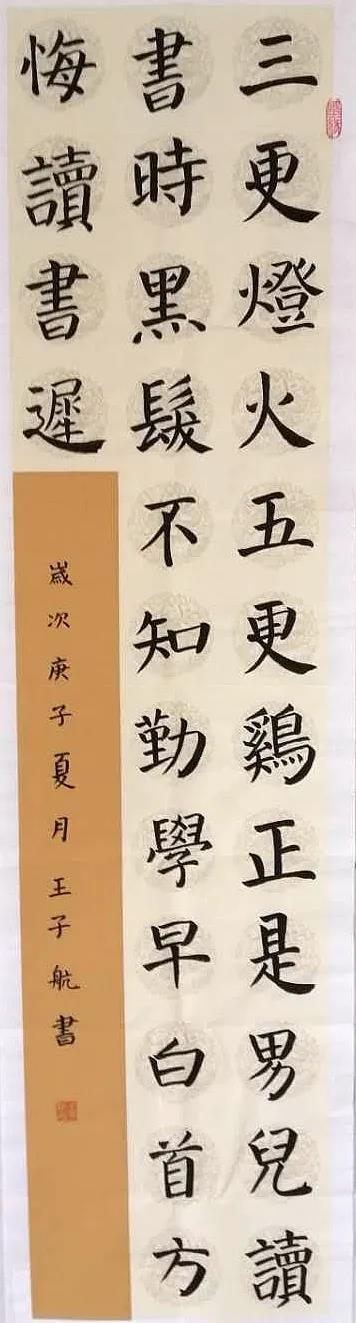 三更燈火五更鷄正是男兒讀
書時黑髮不知勤學早白首方
悔讀書遲
歲次庚子夏月王子航書